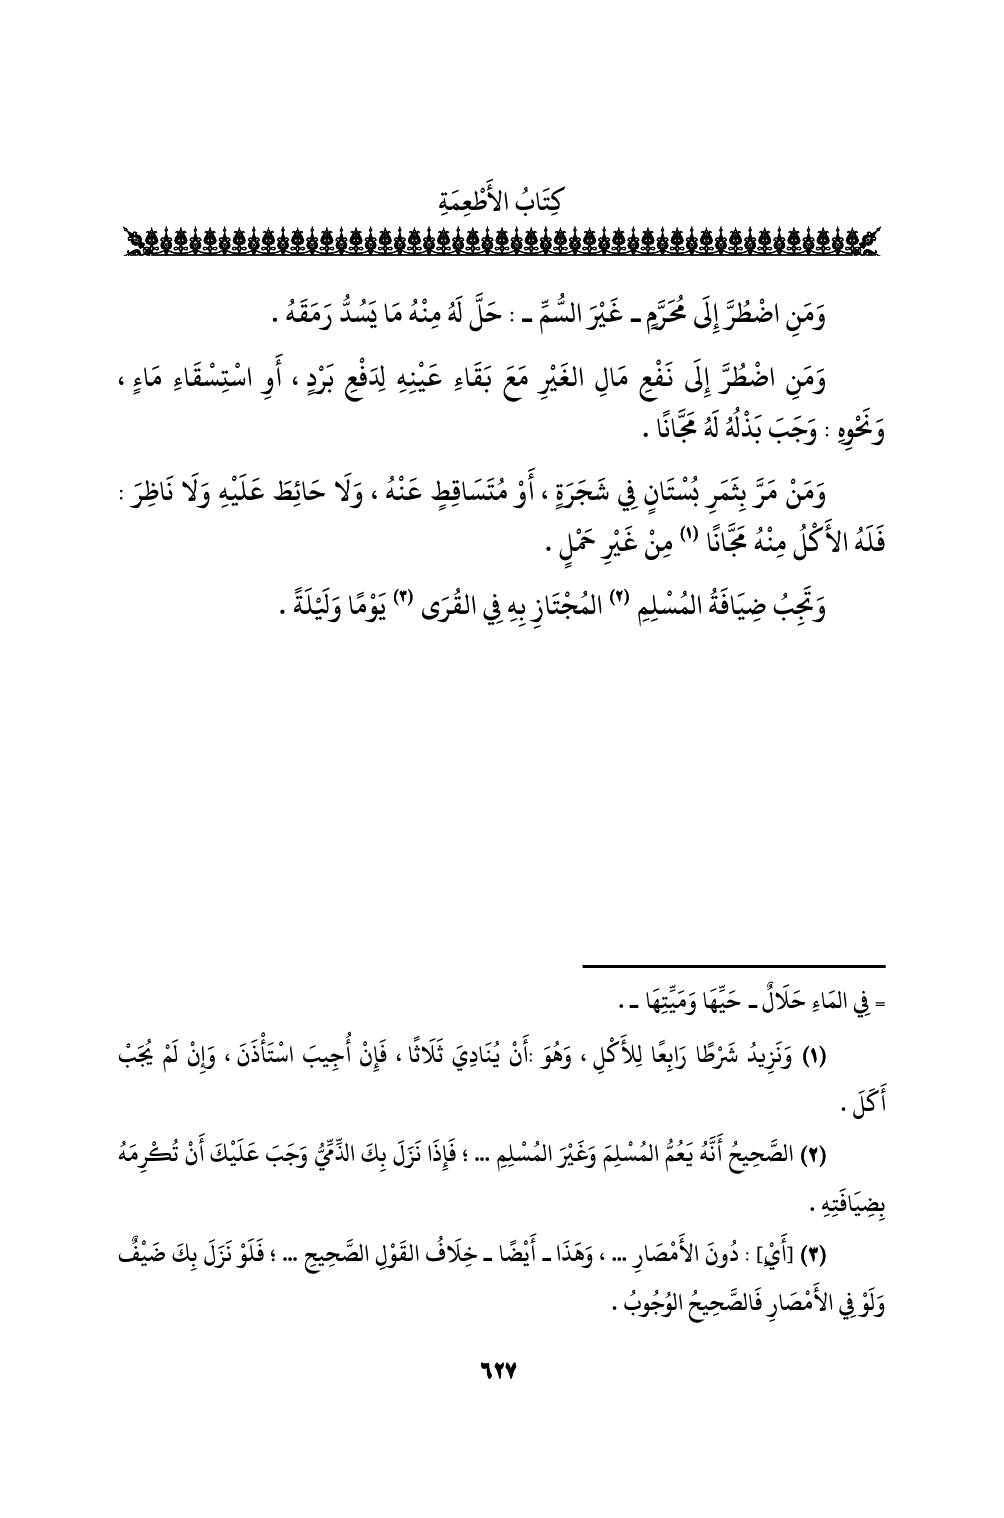 كِتَابُ الأَطْعِمَةِ
وَمَنِ اضْطُرَّ إِلَى مُحَرَّمٍ ـ غَيْرَ السُّمِّ ـ : حَلَّ لَهُ مِنْهُ مَا يَسُدُّ رَمَقَهُ .
وَمَنِ اضْطُرَّ إِلَى نَفْعِ مَالِ الغَيْرِ مَعَ بَقَاءِ عَيْنِهِ لِدَفْعِ بَرْدٍ ، أَوِ اسْتِسْقَاءِ مَاءٍ ،
وَنَحْوِهِ : وَجَبَ بَذْلُهُ لَهُ مَجَّانًا .
وَمَنْ مَرَّ بِثَمَرِ بُسْتَانٍ فِي شَجَرَةٍ ، أَوْ مُتَسَاقِطٍ عَنْهُ ، وَلَا حَائِطَ عَلَيْهِ وَلَا نَاظِرَ :
فَلَهُ الأَكْلُ مِنْهُ مَجَّانًا (١) مِنْ غَيْرِ حَمْلٍ .
وَتَجِبُ ضِيَافَةُ المُسْلِمِ (٢) المُجْتَازِ بِهِ فِي القُرَى (٣) يَوْمًا وَلَيْلَةً .
= فِي المَاءِ حَلَالٌ ـ حَيِّهَا وَمَيِّتِهَا ـ .
(١) وَنَزِيدُ شَرْطًا رَابِعًا لِلأَكْلِ ، وَهُوَ :أَنْ يُنَادِيَ ثَلَاثًا ، فَإِنْ أُجِيبَ اسْتَأْذَنَ ، وَإِنْ لَمْ يُجَبْ
أَكَلَ .
(٢) الصَّحِيحُ أَنَّهُ يَعُمُّ المُسْلِمَ وَغَيْرَ المُسْلِمِ ... ؛ فَإِذَا نَزَلَ بِكَ الذِّمِّيُّ وَجَبَ عَلَيْكَ أَنْ تُكْرِمَهُ
بِضِيَافَتِهِ .
(٣) [أَيْ] : دُونَ الأَمْصَارِ ... ، وَهَذَا ـ أَيْضًا ـ خِلَافُ القَوْلِ الصَّحِيحِ ... ؛ فَلَوْ نَزَلَ بِكَ ضَيْفٌ
وَلَوْ فِي الأَمْصَارِ فَالصَّحِيحُ الوُجُوبُ .
٦٢٧